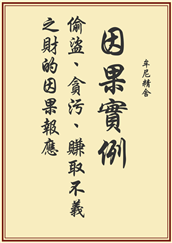 因果實例
牟尼精舍
偷盜、貪污、賺取不義
之財的因果報應